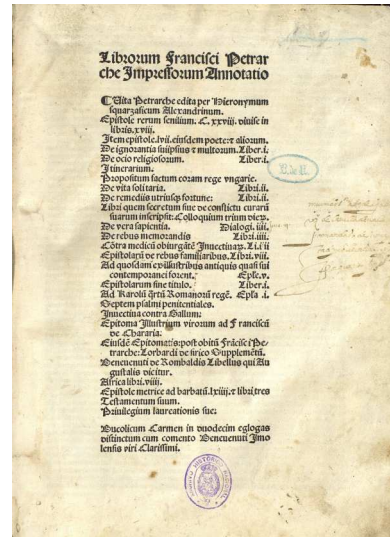 Librorum Francisci Petrar
che Impressorum Annotatio
Vita Petrarche edita per Hieronymum
squarzaficum Alexandrinum.
Epistole rerum senilium. C.xxviii. diuise in
libris.xviii.
Item epistole.lvii.eiusdem poete: ⁊ aliorum.
De ignorantia suiipsius ⁊ multorum. Liber.i.
De ocio religiosorum. Liber.i.
Itinerarium.
Propositum factum coram rege vngarie.
De vita solitaria. Libri.ii.
De remediis vtriusqꝫ fortune: Libri.ii.
Libri quem secretum siue de conflictu curarū
suarum inscripsit: Colloquium trium diexꝫ.
De vera sapientia. Dialogi.iii.
De rebus memorandis Libri.iiii.
Cōtra medicū obiurgātē Inuectiuaꝝ. Li.iiii
Epistolaꝝ de rebus familiaribus. Libri.viii.
Ad quosdam ex illustribus antiquis quasi sui
contemporanei forent. Epłe.v.
Epistolarum sine titulo. Liber.i
Ad Karolū q̄rtū Romanorū regē. Epła.i.
Septem psalmi penitentiales.
Inuectiua contra Gallum:
Epitoma Illustrium virorum ad Franciscū
de Chararia:
Eiusdē Epitomatis: post obitū Frācisci Pe-
trarche: Lombardi de sirico Supplemētū.
Beneuenuti de Rombaldis Libellus qui Au
gustalis dicitur.
Africa libri.viiii.
Epistole metrice ad barbatū.lxiiii: ⁊ libri tres
Testamentum suum.
Priuilegium laureationis sue:
Bucolicum Carmen in duodecim eglogas
distinctum cum comento Beneuenuti Imo
lensis viri Clarissimi.